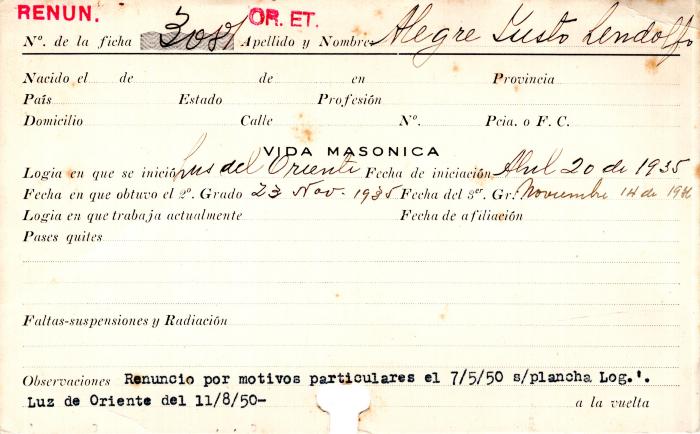 RENUN. OR. ET.
Nº. de la ficha Apellido y Nombre Alegre Justo Lendolfo
Nacido el de de en Provincia
País Estado Profesión
Domicilio Calle Nº. Pcia. o F. C.
VIDA MASONICA
Logia en que se inició Lus del Oriente Fecha de iniciación Abril 20 de 1935
Fecha en que obtuvo el 2º. Grado 23 Nov. 1935 Fecha del 3er. Gr. Noviembre 14 de
Logia en que trabaja actualmente Fecha de afiliación
Pases quites
Faltas-suspensiones y Radiación
Observaciones Renuncio por motivos particulares el 7/5/50 s/plancha Log.'.
Luz de Oriente del 11/8/50- a la vuelta